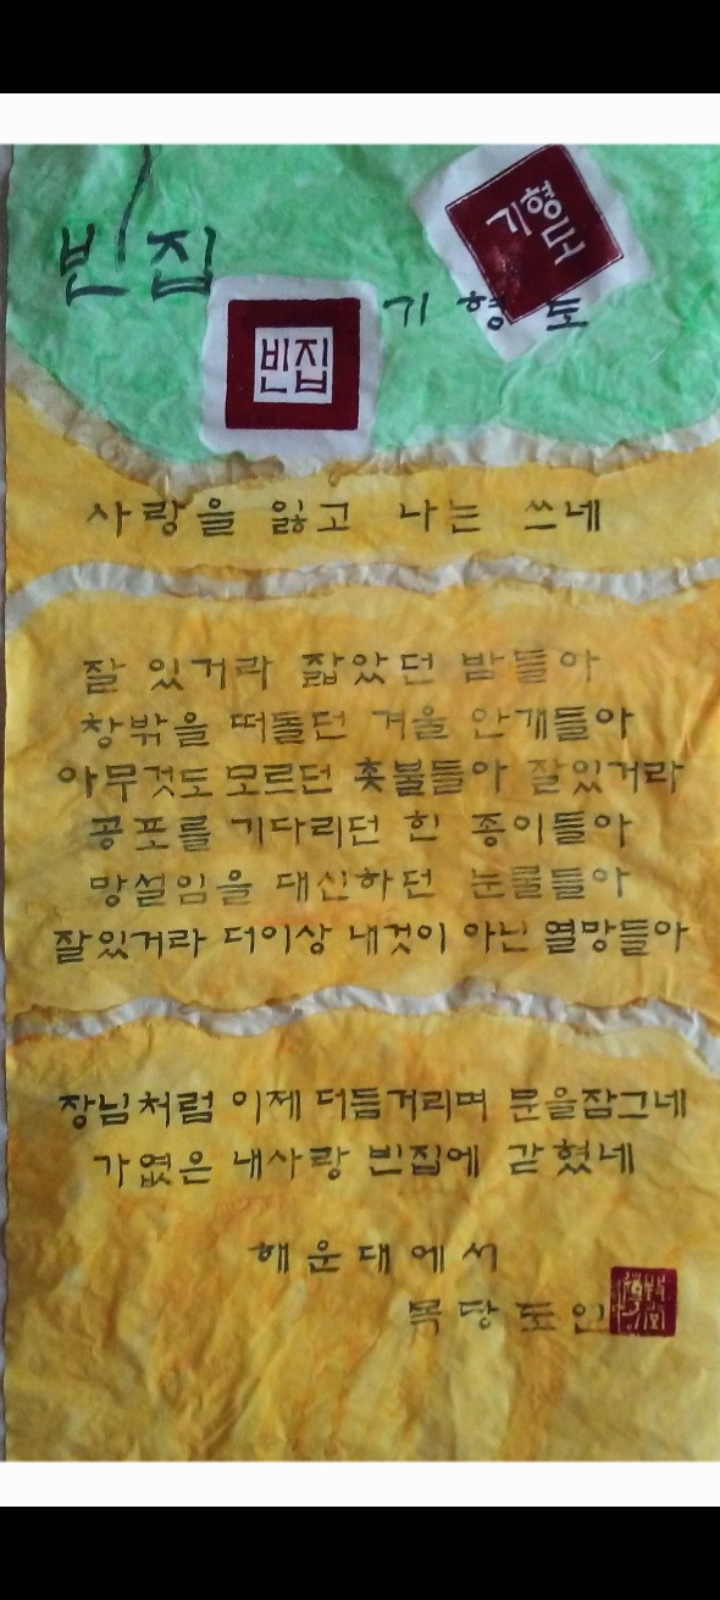 빈집
기형도
기형도
빈집
사랑을 잃고 나는 쓰네
잘 있거라 짧았던 밤들아
창밖을 떠돌던 겨울 안개들아
아무것도 모르던 촛불들아 잘있거라
공포를 기다리던 흰 종이들아
망설임을 대신하던 눈물들아
잘있거라 더이상 내것이 아닌 열망들아
장님처럼 이제 더듬거리며 문을잠그네
가엾은 내사랑 빈집에 갇혔네
해운대에서
목당도인